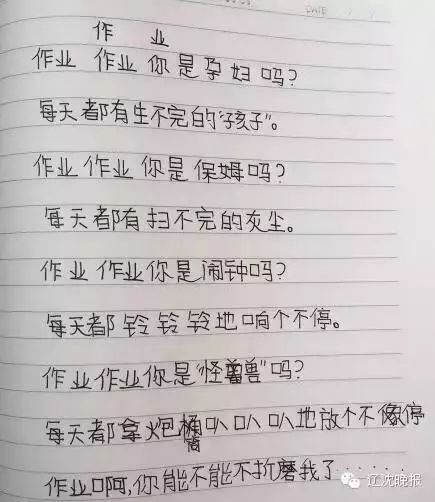 作 业
作业 作业 你是孕妇吗?
每天都有生不完的“孩子”。
作业作业你是保姆吗?
每天都有扫不完的灰尘。
作业 作业你是闹钟吗?
每天都铃铃铃地响个不停。
作业作业你是“怪兽”吗?
每天都拿炮筒叭叭叭地放个不停
作业啊,你能不能不折磨我了······
辽沈晚报